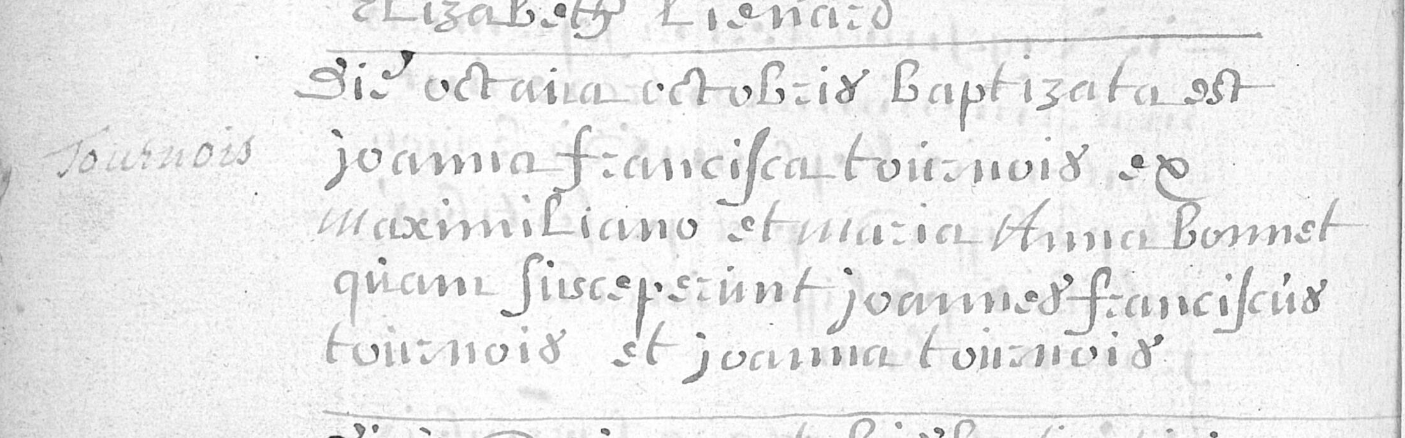 Elizabeth Lienard
Die octava octobris baptizata est
Tournois
joanna francisca tournois ex
Maximiliano et maria Anna bonnet
quam susceperunt joannes franciscus
tournois et joanna tournois